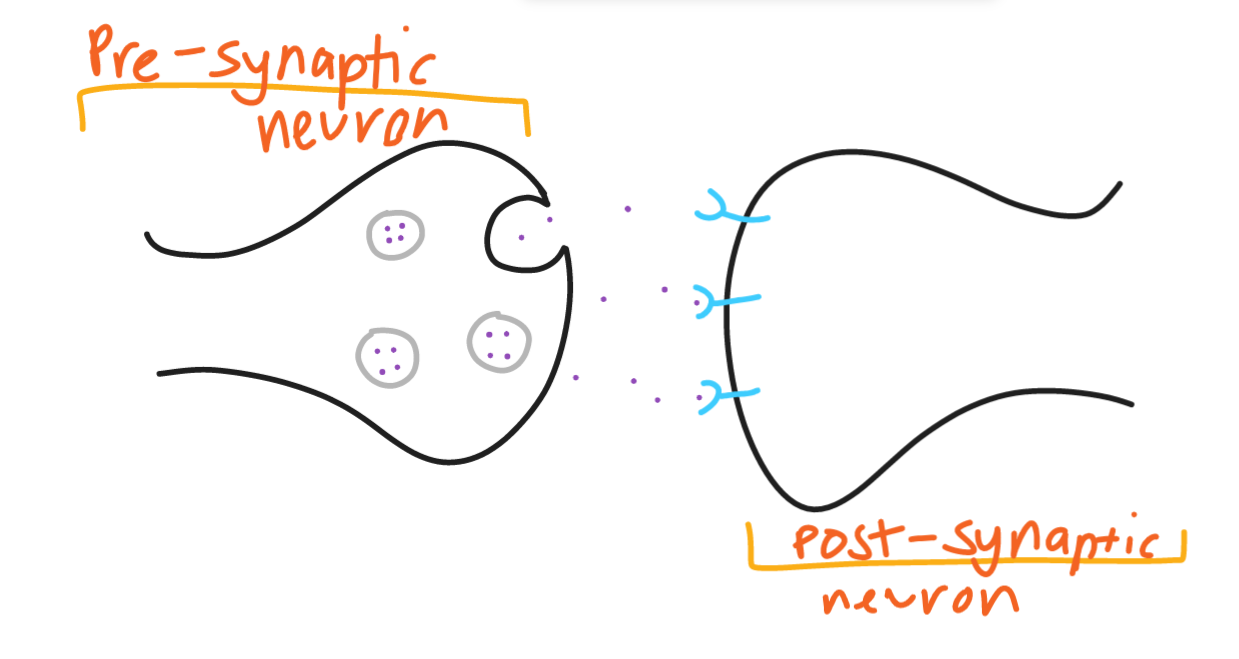 Pre-synaptic
neuron
post-synaptic
neuron